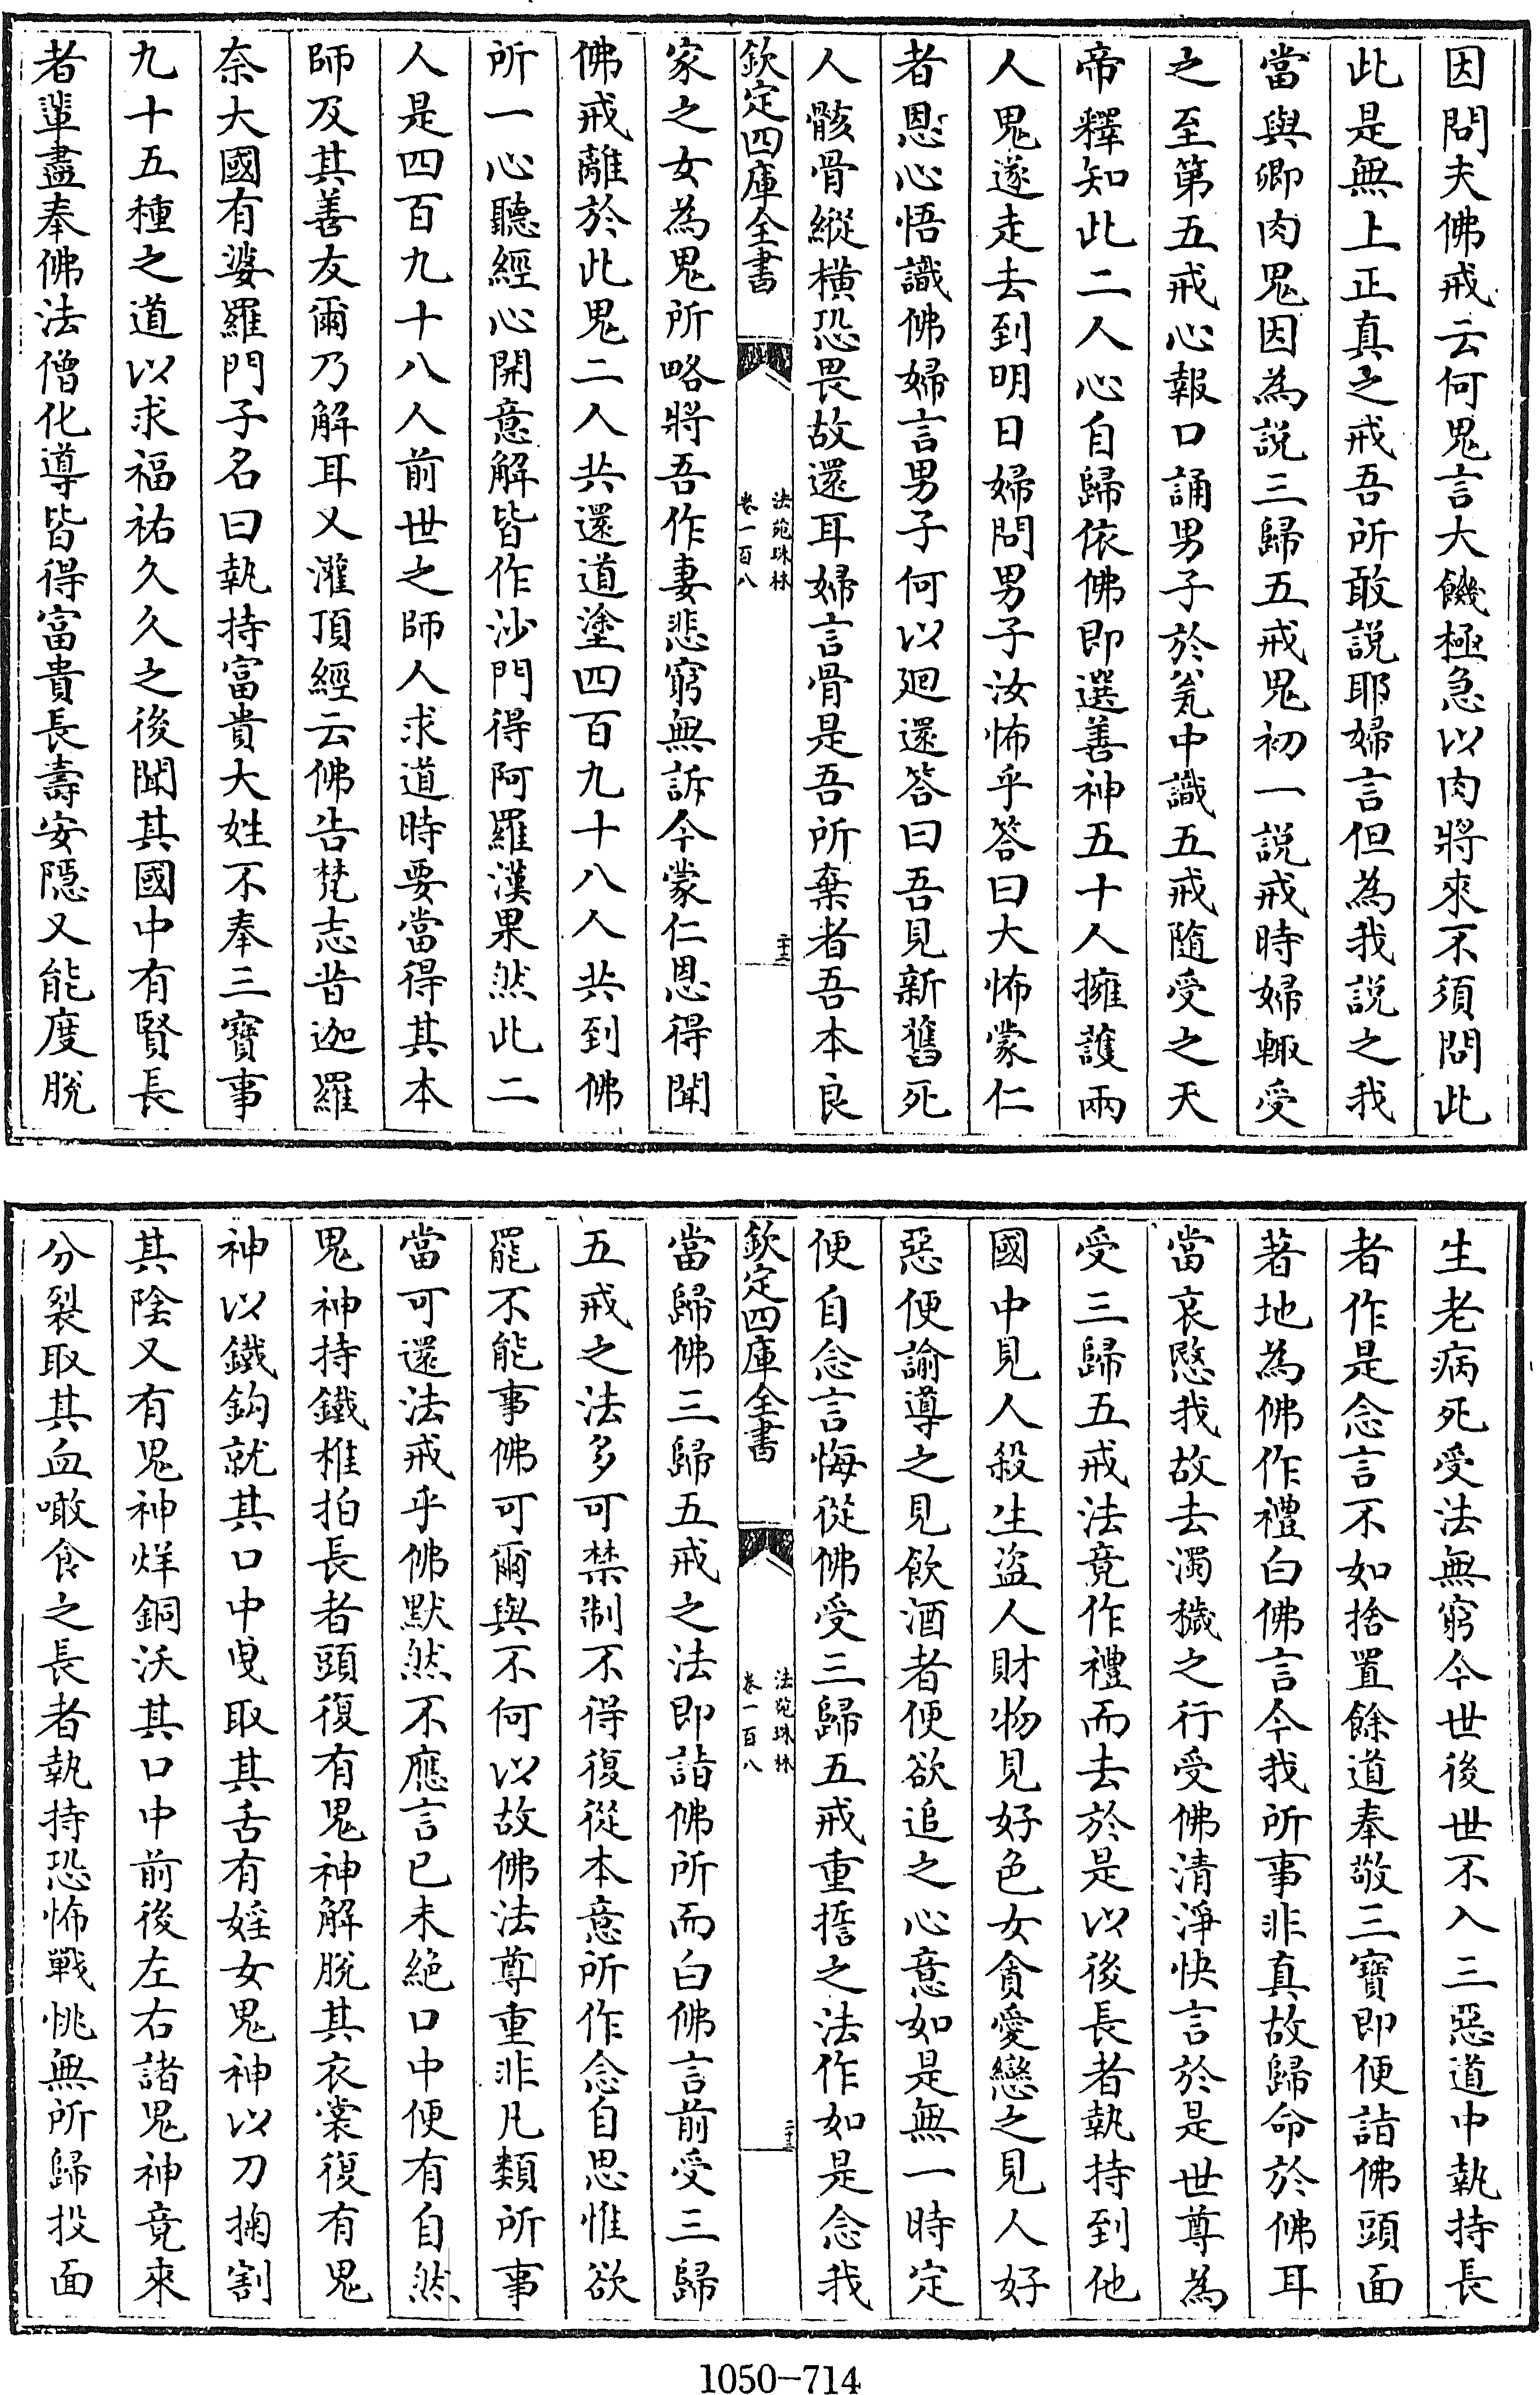 因問夫佛戒云何鬼言大饑極急以肉將來不須問此
此是無上正真之戒吾所敢説耶婦言但為我説之我
當與卿肉鬼因為説三歸五戒鬼初一説戒時婦輙受
之至第五戒心報口誦男子於瓮中識五戒隨受之天
帝釋知此二人心自歸依佛即選善神五十人擁護兩
人鬼遂走去到明日婦問男子汝怖乎答曰大怖蒙仁
者恩心悟識佛婦言男子何以廻還答曰吾見新舊死
人骸骨縱橫恐畏故還耳婦言骨是吾所棄者吾本良
欽定四庫全書
法苑珠林
卷一百八
二十三
家之女為鬼所略將吾作妻悲窮無訴今蒙仁恩得聞
佛戒離於此鬼二人共還道塗四百九十八人共到佛
所一心聽經心開意解皆作沙門得阿羅漢果然此二
人是四百九十八人前世之師人求道時要當得其本
師及其善友爾乃解耳又灌頂經云佛告梵志昔迦羅
奈大國有婆羅門子名曰執持富貴大姓不奉三寶事
九十五種之道以求福祐久久之後聞其國中有賢長
者輩盡奉佛法僧化導皆得富貴長壽安隱又能度脫
生老病死受法無窮今世後世不入三惡道中執持長
者作是念言不如捨置餘道奉敬三寶即便詣佛頭面
著地為佛作禮白佛言今我所事非真故歸命於佛耳
當哀愍我故去濁穢之行受佛清淨快言於是世尊為
受三歸五戒法竟作禮而去於是以後長者執持到他
國中見人殺生盜人財物見好色女貪愛戀之見人好
惡便諭導之見飲酒者便欲追之心意如是無一時定
便自念言悔從佛受三歸五戒重誓之法作如是念我
欽定四庫全書
法苑珠林
卷一百八
二十三
當歸佛三歸五戒之法即詣佛所而白佛言前受三歸
五戒之法多可禁制不得復從本意所作念自思惟欲
罷不能事佛可爾與不何以故佛法尊重非凡類所事
當可還法戒乎佛默然不應言已未絶口中便有自然
鬼神持鐵椎拍長者頭復有鬼神解脫其衣裳復有鬼
神以鐵鈎就其口中曳取其舌有婬女鬼神以刀掬割
其陰又有鬼神烊銅沃其口中前後左右諸鬼神竟來
分裂取其血噉食之長者執持恐怖戰恌無所歸投面
1050-714